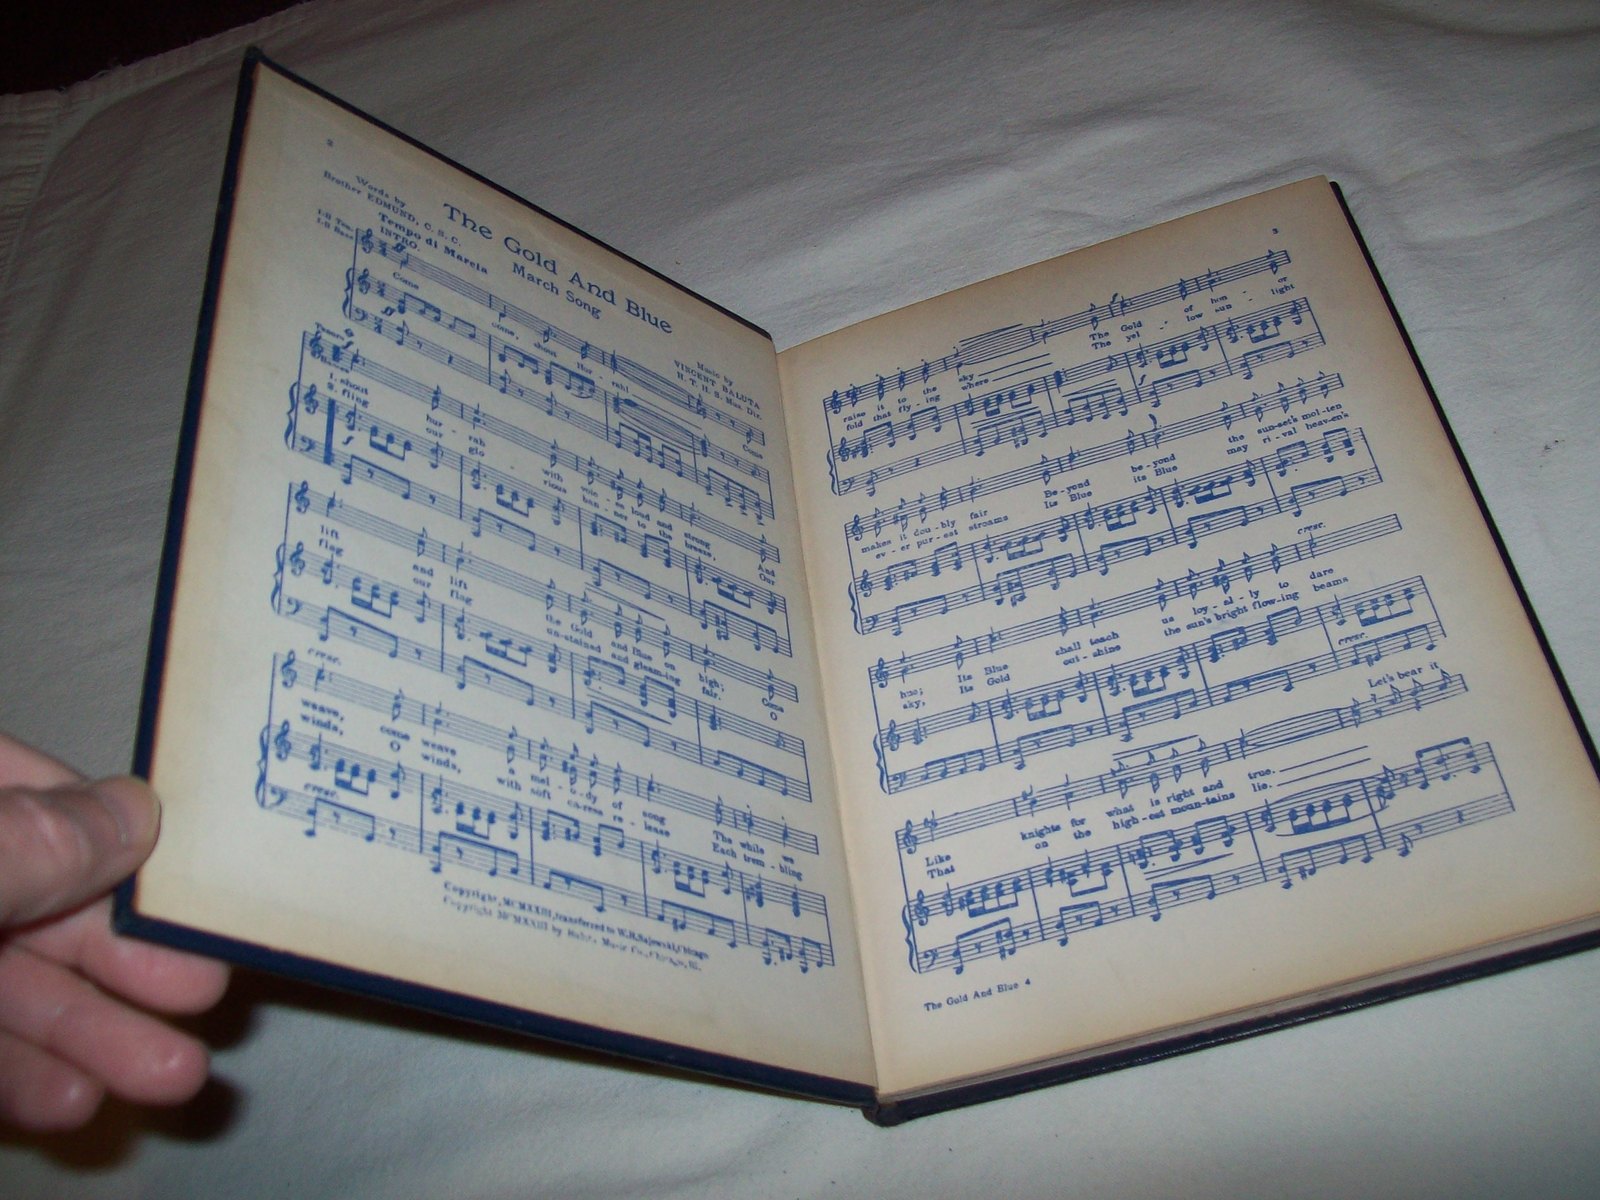 2
The Gold And Blue
March Song
Words by
Brother EDMUND, C. S. C.
Music by
VINCENT BALUTA
H. T. H. S. Mus. Dir.
Tempo di Marcia
INTRO.
I-II Ten.
I-II Bass
Come come, shout Hur - rah! Come
1. shout hur - rah with voic - es loud and strong And
2. fling our glo - rious ban - ner to the breeze, Our
lift and lift the Gold and Blue on high; Come
flag our flag un-stained and gleam-ing fair. O
cresc.
weave, come weave a mel - o - dy of song The while we
winds, O winds, with soft ca-ress re - lease Each trem - bling
cresc.
Copyright, MCMXXIII, transferred to W.H. Sajewski, Chicago
Copyright MCMXXIII by Music Co., Chicago, Ill.
3
raise it to the sky The Gold of hon - or
fold that fly - ing where The yel - low sun - light
makes it dou - bly fair Be - yond be - yond the sun-set's mol-ten
ev - er pur-est streams Its Blue its Blue may ri - val heav-en's
cresc.
hue; Its Blue shall teach us loy - al - ly to dare
sky; Its Gold out - shine the sun's bright flow-ing beams
cresc.
Let's bear it,
Like knights for what is right and true.
That on the high-est moun-tains lie.
The Gold And Blue 4